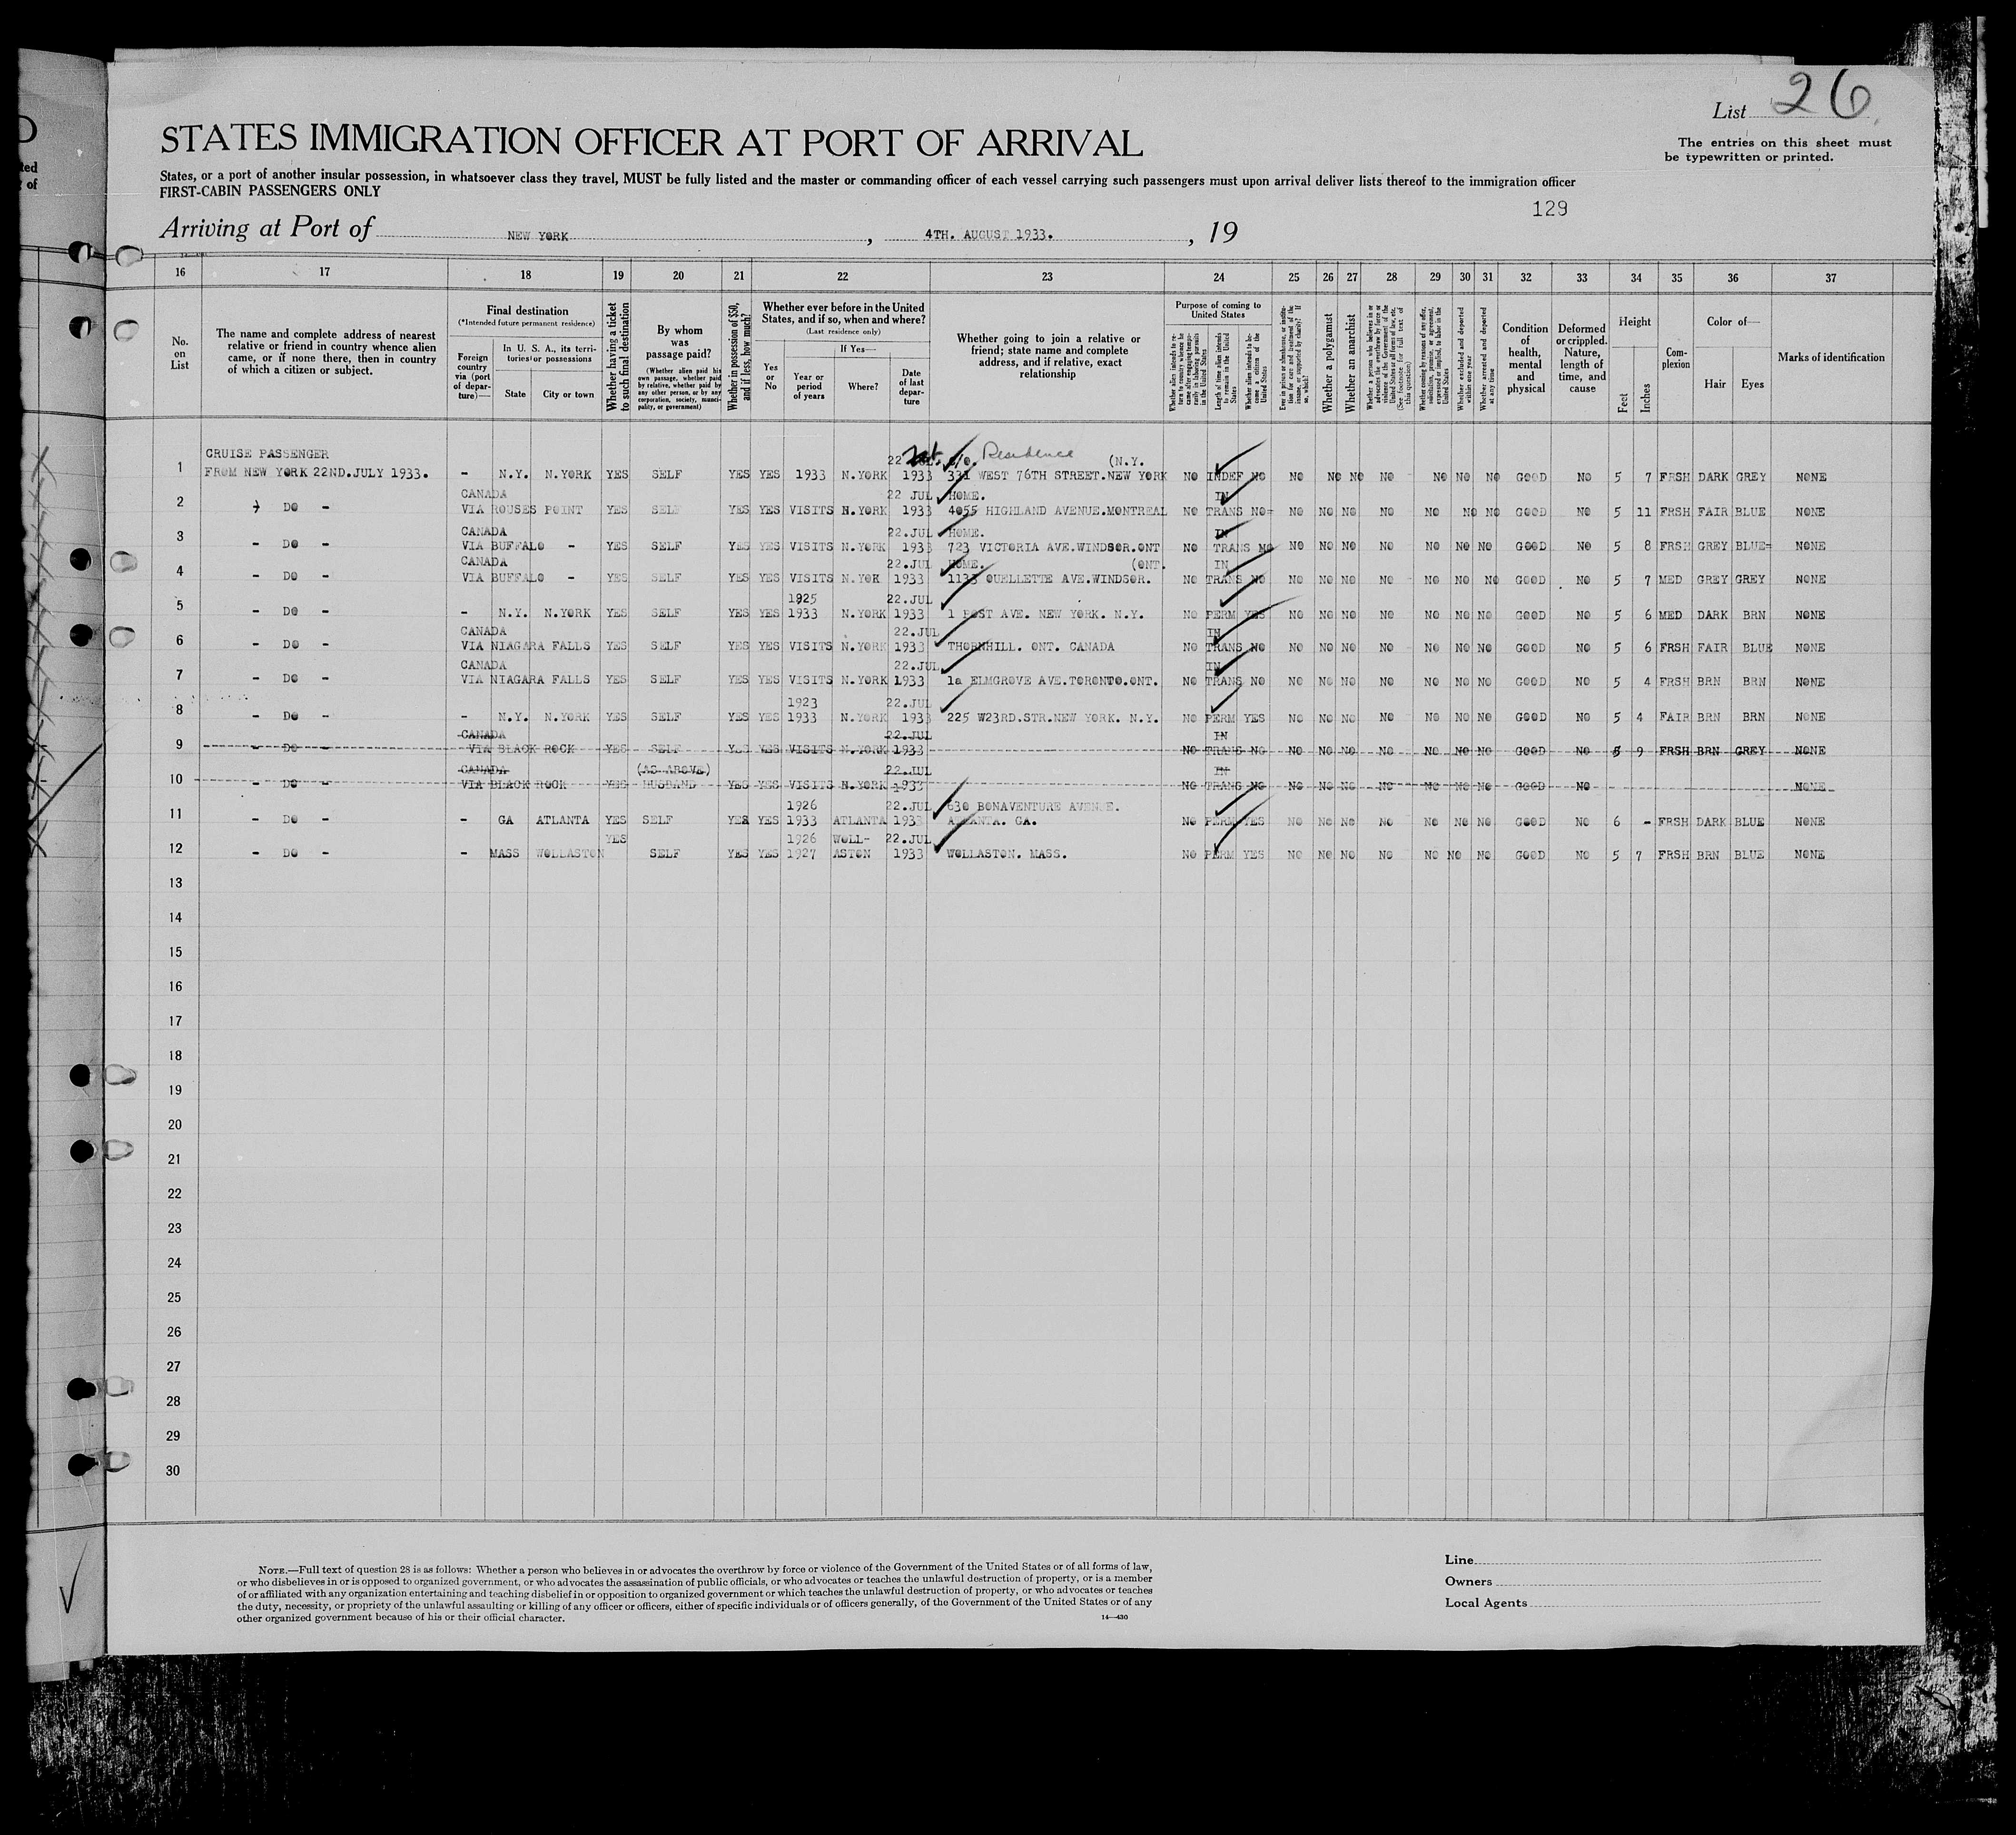 List 26
The entries on this sheet must
be typewritten or printed.
STATES IMMIGRATION OFFICER AT PORT OF ARRIVAL
States, or a port of another insular possession, in whatsoever class they travel, MUST be fully listed and the master or commanding officer of each vessel carrying such passengers must upon arrival deliver lists thereof to the immigration officer
FIRST-CABIN PASSENGERS ONLY
129
Arriving at Port of NEW YORK, 4TH. AUGUST 1933., 19
16 17 18 19 20 21 22 23 24 25 26 27 28 29 30 31 32 33 34 35 36 37
No. on List
The name and complete address of nearest relative or friend in country whence alien came, or if none there, then in country of which a citizen or subject.
Final destination
(*Intended future permanent residence)
Foreign country via (port of departure)—
In U. S. A., its territories or possessions
State
City or town
Whether having a ticket to such final destination
By whom was passage paid?
(Whether alien paid his own passage, whether paid by relative, whether paid by any other person, or by any corporation, society, municipality, or government)
Whether in possession of $50, and if less, how much?
Whether ever before in the United States, and if so, when and where?
(Last residence only)
Yes or No
If Yes—
Year or period of years
Where?
Date of last departure
Whether going to join a relative or friend; state name and complete address, and if relative, exact relationship
Purpose of coming to United States
Whether alien intends to return to country whence he came after engaging temporarily in laboring pursuits in the United States
Length of time alien intends to remain in the United States
Whether alien intends to become a citizen of the United States
Ever in prison or almshouse, or institution for care and treatment of the insane, or supported by charity? If so, which?
Whether a polygamist
Whether an anarchist
Whether a person who believes in or advocates the overthrow by force or violence of the Government of the United States or all forms of law, etc. (See footnote for full text of this question)
Whether coming by reasons of any offer, solicitation, promise, or agreement, expressed or implied, to labor in the United States
Whether excluded and deported within one year
Whether arrested and deported at any time
Condition of health, mental and physical
Deformed or crippled. Nature, length of time, and cause
Height
Feet
Inches
Complexion
Color of—
Hair
Eyes
Marks of identification
CRUISE PASSENGER 22 JUL. c/o. Residence (N.Y.
1 FROM NEW YORK 22ND.JULY 1933. - N.Y. N.YORK YES SELF YES YES 1933 N.YORK 1933 331 WEST 76TH STREET.NEW YORK NO INDEF NO NO NO NO NO NO NO NO GOOD NO 5 7 FRSH DARK GREY NONE
CANADA 22 JUL HOME. IN
2 - DO - VIA ROUSES POINT YES SELF YES YES VISITS N.YORK 1933 4055 HIGHLAND AVENUE.MONTREAL NO TRANS NO= NO NO NO NO NO NO NO GOOD NO 5 11 FRSH FAIR BLUE NONE
CANADA 22.JUL HOME. IN
3 - DO - VIA BUFFALO - YES SELF YES YES VISITS N.YORK 1933 723 VICTORIA AVE.WINDSOR.ONT NO TRANS NO NO NO NO NO NO NO NO GOOD NO 5 8 FRSH GREY BLUE= NONE
CANADA 22.JUL HOME. (ONT. IN
4 - DO - VIA BUFFALO - YES SELF YES YES VISITS N.YOK 1933 1133 OUELLETTE AVE.WINDSOR. NO TRANS NO NO NO NO NO NO NO NO GOOD NO 5 7 MED GREY GREY NONE
1925 22.JUL
5 - DO - - N.Y. N.YORK YES SELF YES YES 1933 N.YORK 1933 1 POST AVE. NEW YORK. N.Y. NO PERM YES NO NO NO NO NO NO NO GOOD NO 5 6 MED DARK BRN NONE
CANADA 22.JUL IN
6 - DO - VIA NIAGARA FALLS YES SELF YES YES VISITS N.YORK 1933 THORNHILL. ONT. CANADA NO TRANS NO NO NO NO NO NO NO NO GOOD NO 5 6 FRSH FAIR BLUE NONE
CANADA 22.JUL IN
7 - DO - VIA NIAGARA FALLS YES SELF YES YES VISITS N.YORK 1933 1a ELMGROVE AVE.TORONTO.ONT. NO TRANS NO NO NO NO NO NO NO NO GOOD NO 5 4 FRSH BRN BRN NONE
1923 22.JUL
8 - DO - - N.Y. N.YORK YES SELF YES YES 1933 N.YORK 1933 225 W23RD.STR.NEW YORK. N.Y. NO PERM YES NO NO NO NO NO NO NO GOOD NO 5 4 FAIR BRN BRN NONE
CANADA 22.JUL IN
9 - DO - VIA BLACK ROCK YES SELF YES YES VISITS N.YORK 1933 NO TRANS NO NO NO NO NO NO NO NO GOOD NO 5 9 FRSH BRN GREY NONE
CANADA (AS ABOVE) 22.JUL IN
10 - DO - VIA BLACK ROCK YES HUSBAND YES YES VISITS N.YORK 1933 NO TRANS NO NO NO NO NO NO NO NO GOOD NO NONE
1926 22.JUL 630 BONAVENTURE AVENUE.
11 - DO - - GA ATLANTA YES SELF YES YES 1933 ATLANTA 1933 ATLANTA. GA. NO PERM YES NO NO NO NO NO NO NO GOOD NO 6 - FRSH DARK BLUE NONE
YES 1926 WOLL- 22.JUL
12 - DO - - MASS WOLLASTON SELF YES YES 1927 ASTON 1933 WOLLASTON. MASS. NO PERM YES NO NO NO NO NO NO NO GOOD NO 5 7 FRSH BRN BLUE NONE
13
14
15
16
17
18
19
20
21
22
23
24
25
26
27
28
29
30
NOTE.—Full text of question 28 is as follows: Whether a person who believes in or advocates the overthrow by force or violence of the Government of the United States or of all forms of law,
or who disbelieves in or is opposed to organized government, or who advocates the assassination of public officials, or who advocates or teaches the unlawful destruction of property, or is a member
of or affiliated with any organization entertaining and teaching disbelief in or opposition to organized government or which teaches the unlawful destruction of property, or who advocates or teaches
the duty, necessity, or propriety of the unlawful assaulting or killing of any officer or officers, either of specific individuals or of officers generally, of the Government of the United States or of any
other organized government because of his or their official character.
14—430
Line
Owners
Local Agents